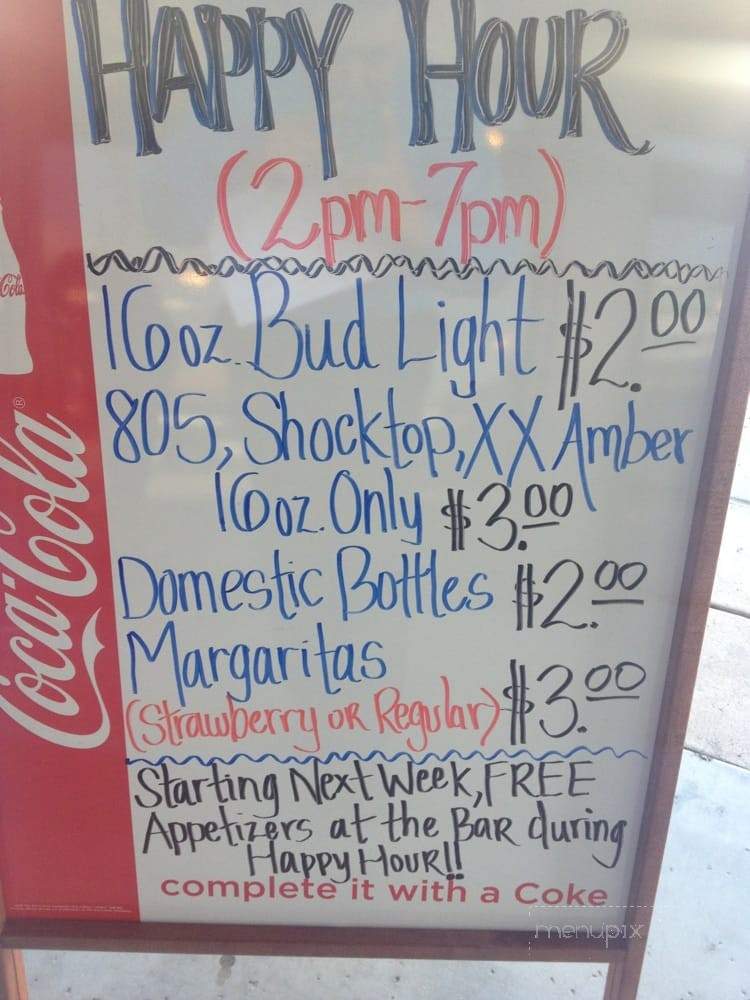 HAPPY HOUR
(2pm-7pm)
16oz. Bud Light $2.00
805, Shocktop, XX Amber
16oz. Only $3.00
Domestic Bottles $2.00
Margaritas
(Strawberry OR Regular) $3.00
Starting Next Week, FREE
Appetizers at the BAR during
Happy Hour!!
complete it with a Coke
Coca-Cola®
Cola
menupix